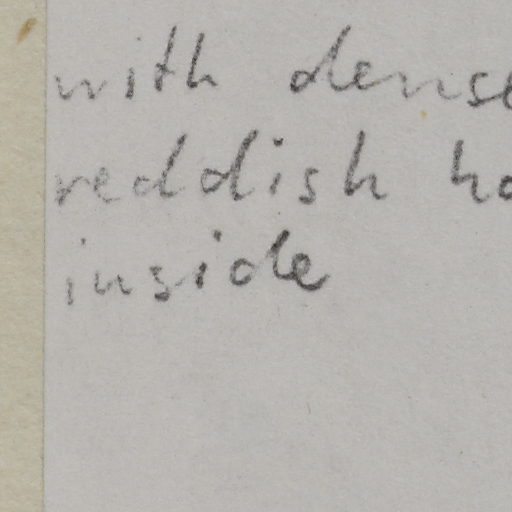 with dense
reddish
inside